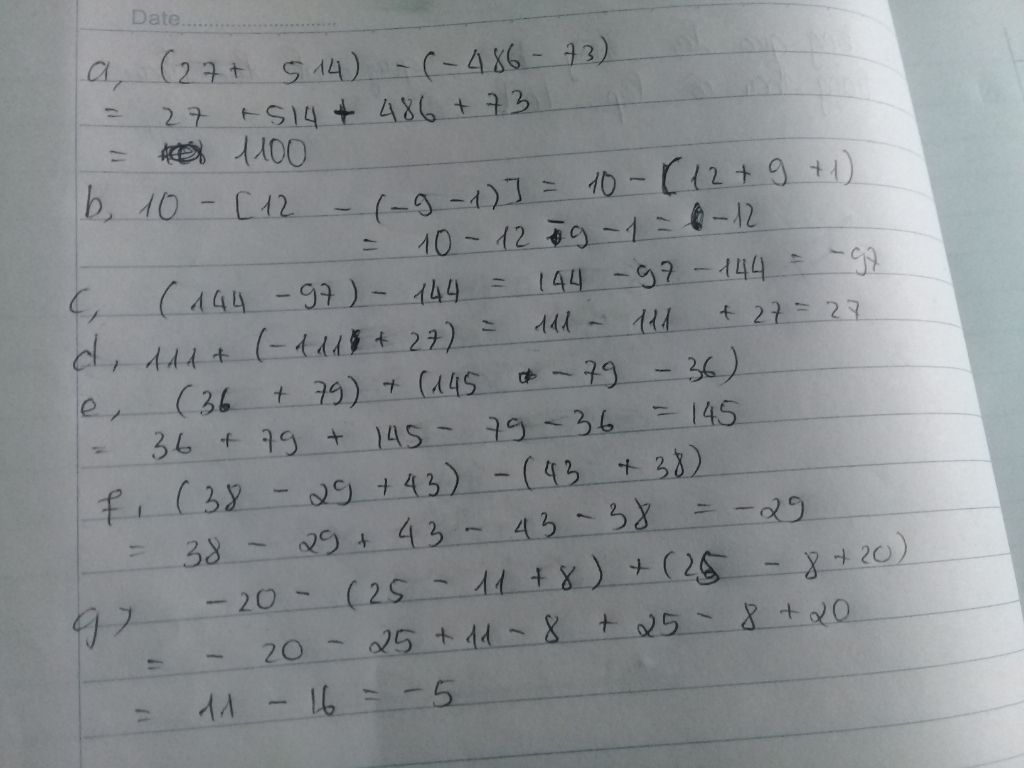 Date
a, (27 + 514) - (-486 - 73)
= 27 + 514 + 486 + 73
= 1100
b, 10 - [12 - (-9 - 1)] = 10 - [12 + 9 + 1)
= 10 - 12 - 9 - 1 = -12
c, (144 - 97) - 144 = 144 - 97 - 144 = -97
d, 111 + (-111 + 27) = 111 - 111 + 27 = 27
e, (36 + 79) + (145 - 79 - 36)
= 36 + 79 + 145 - 79 - 36 = 145
f, (38 - 29 + 43) - (43 + 38)
= 38 - 29 + 43 - 43 - 38 = -29
g) -20 - (25 - 11 + 8) + (25 - 8 + 20)
= - 20 - 25 + 11 - 8 + 25 - 8 + 20
= 11 - 16 = -5